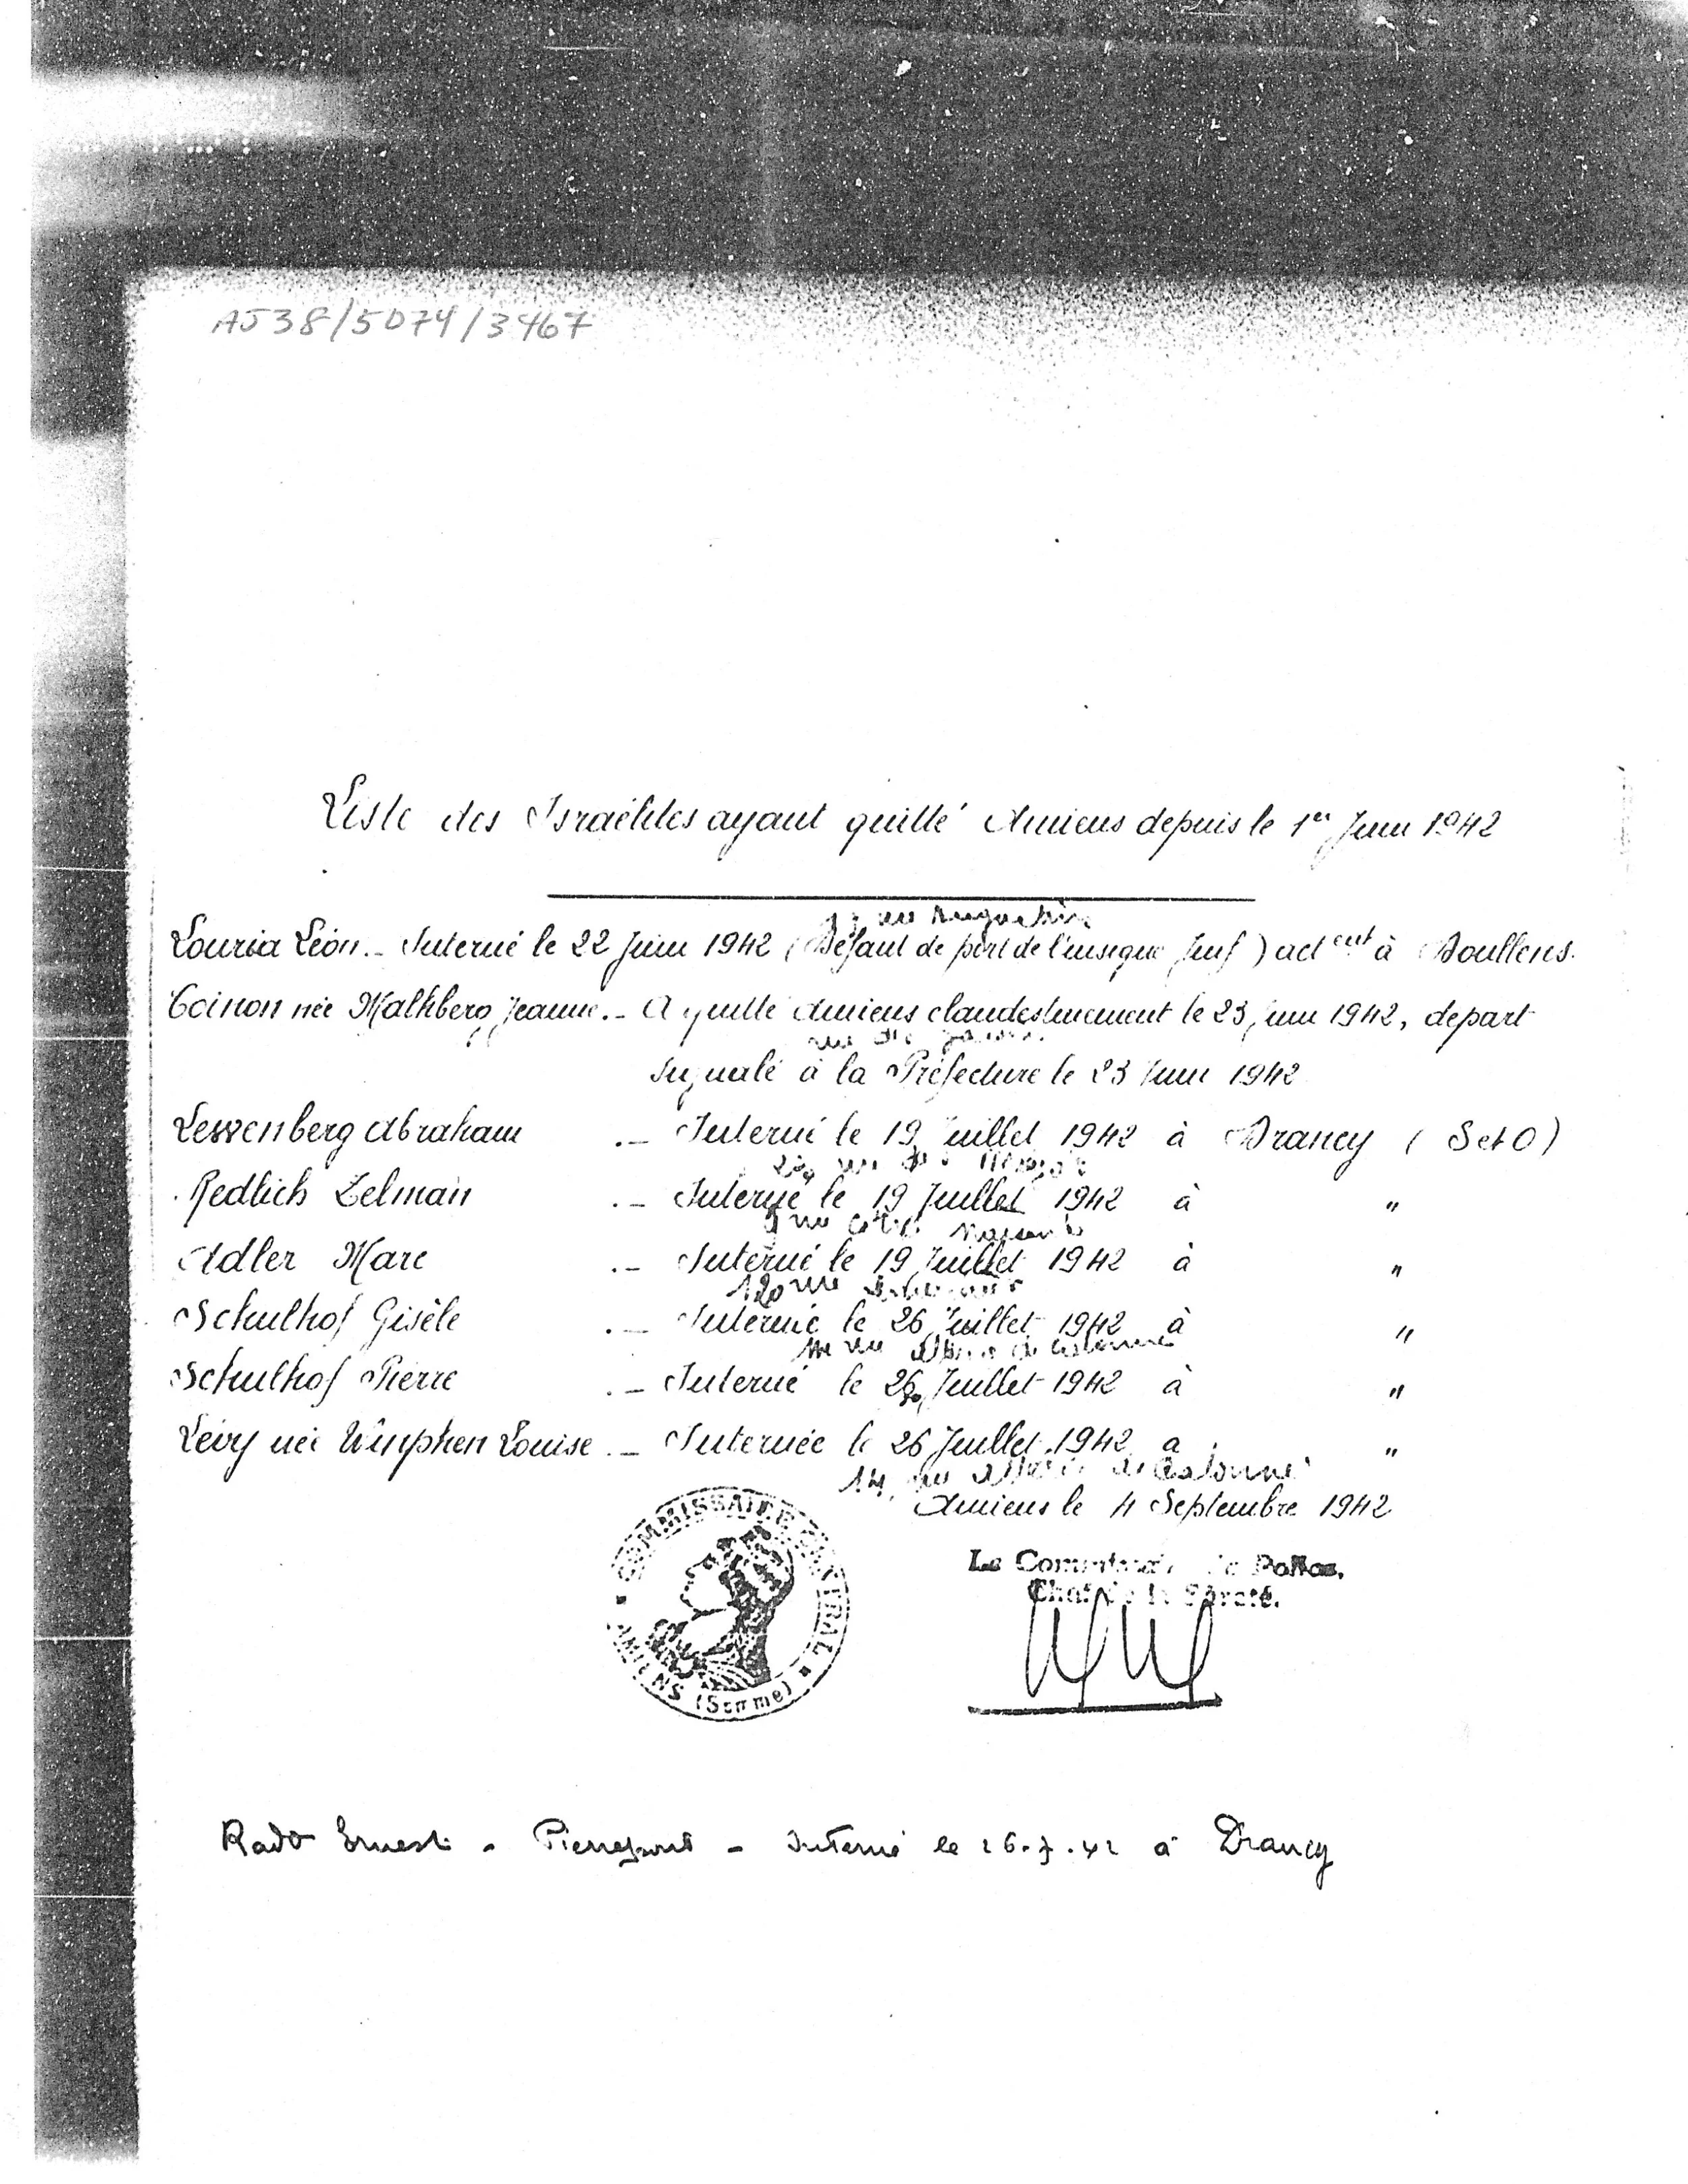 AJ38/5074/3467
Liste des Israélites ayant quitté Amiens depuis le 1er Juin 1942
rue
Louria Léon.- Interné le 22 Juin 1942 (Défaut de port de l'insigne Juif) actent à Doullens.
Coinon née Malkberg Jeanne.- A quitté Amiens clandestinement le 23 Juin 1942, départ
rue
signalé à la Préfecture le 23 Juin 1942
Lewenberg Abraham .- Interné le 19 Juillet 1942 à Drancy (S et O)
rue
Redlich Zelman .- Interné le 19 Juillet 1942 à "
9 rue
Adler Marc .- Interné le 19 Juillet 1942 à "
120 rue
Schulhof Gisèle .- Internée le 26 Juillet 1942 à "
rue de Calonne
Schulhof Pierre .- Interné le 26 Juillet 1942 à "
Lévy née Winphen Louise .- Internée le 26 Juillet 1942 à "
14, rue de Calonne
Amiens le 4 Septembre 1942
COMMISSAIRE CENTRAL
AMIENS (Somme)
Le Commissaire de Police,
Chef de la Sûreté.
Rado Ernest - Pierrepont - Interné le 26.7.42 à Drancy